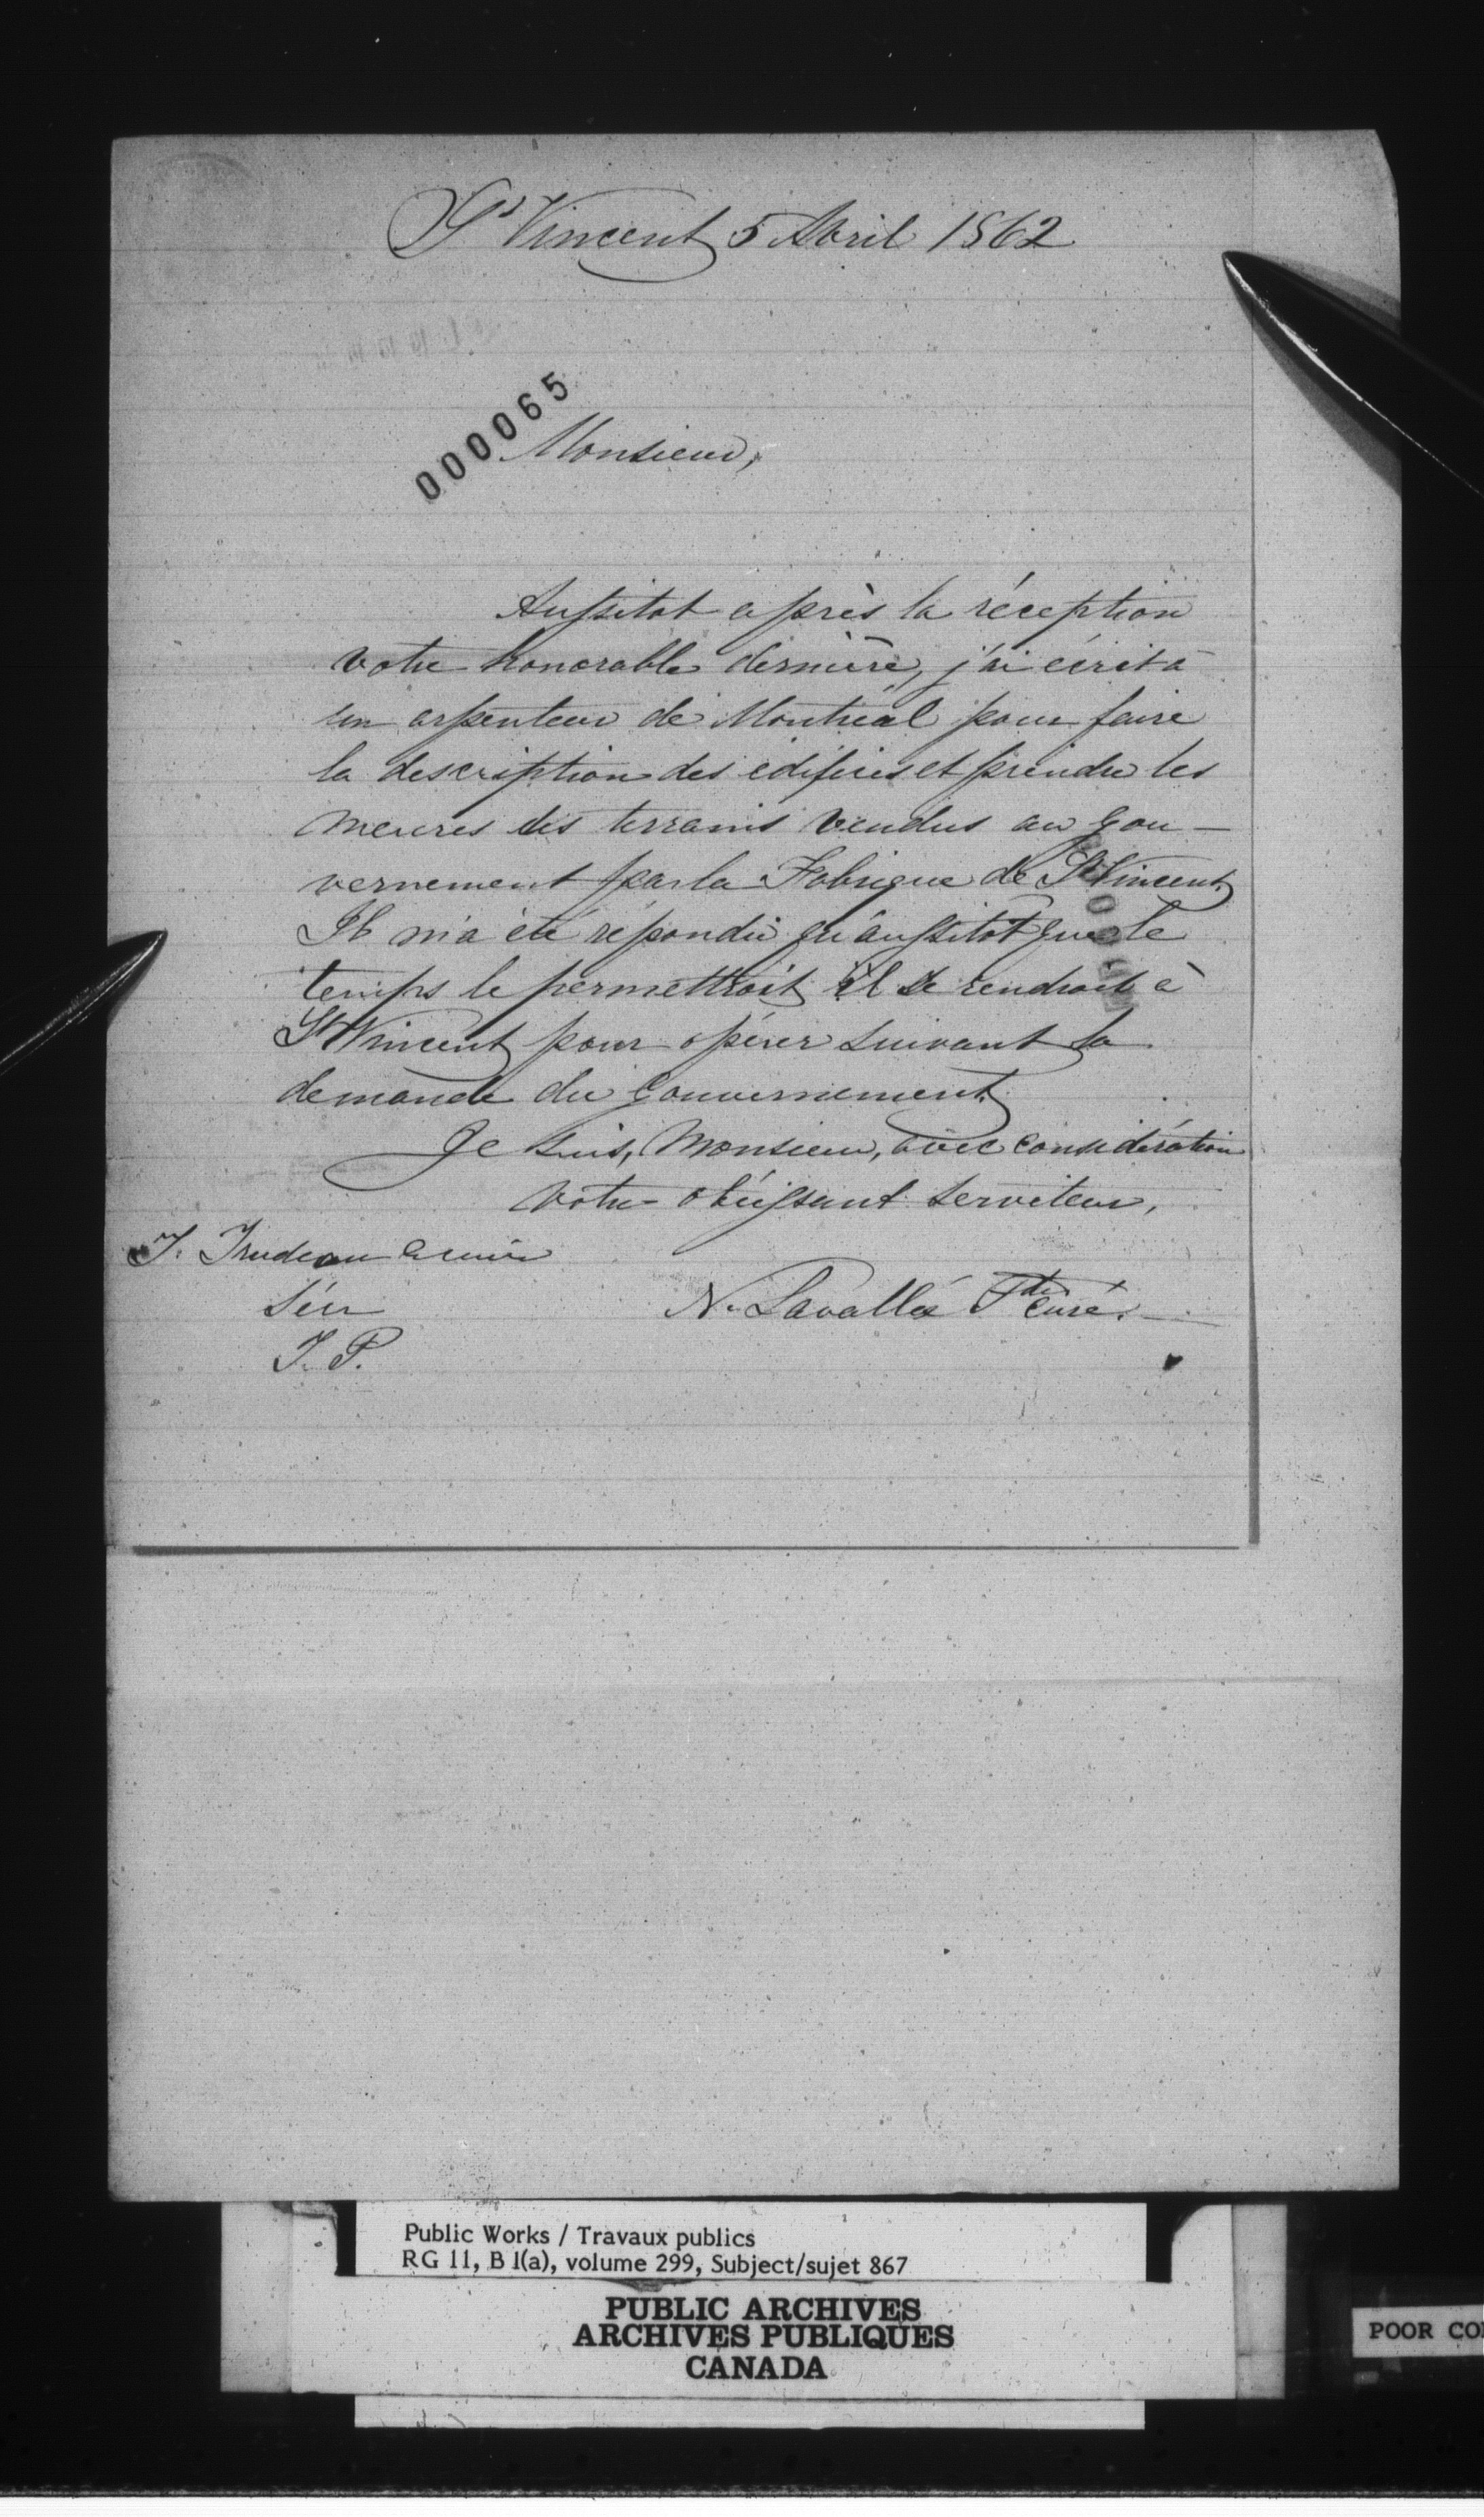 St Vincent 5 Avril 1862
000065
Monsieur,
Aussitot après la réception
votre honorable dernière, j'ai écrit à
un arpenteur de Montréal pour faire
la description des édifices et prendre les
mesures des terrains vendus au gou-
vernement par la Fabrique de St Vincent
Il m'a été répondu qu'aussitôt que le
temps le permettroit il se rendroit à
St Vincent pour opérer suivant la
demande du gouvernement.
Je suis, Monsieur, avec considération
votre obéissant serviteur,
T. Trudeau Ecuier
Sécr
N. Lavallée Ptre curé.
T. P.
Public Works / Travaux publics
RG 11, B 1(a), volume 299, Subject/sujet 867
PUBLIC ARCHIVES
ARCHIVES PUBLIQUES
CANADA
POOR CO